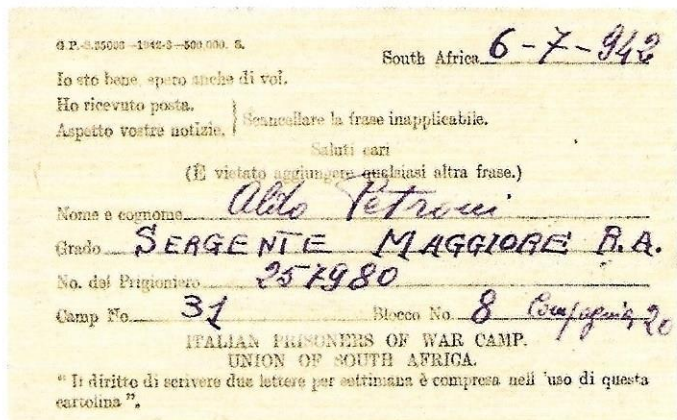 G.P.-S.35033—1942-3—500,000. S.
South Africa 6-7-942
Io sto bene, spero anche di voi.
Ho ricevuto posta.
Aspetto vostre notizie.
} Scancellare la frase inapplicabile.
Saluti cari
(È vietato aggiungere qualsiasi altra frase.)
Nome e cognome Aldo Petroni
Grado SERGENTE MAGGIORE R.A.
No. del Prigioniero 251980
Camp No. 31 Blocco No. 8 Compagnia 20
ITALIAN PRISONERS OF WAR CAMP.
UNION OF SOUTH AFRICA.
“ Il diritto di scrivere due lettere per settimana è compresa nell 'uso di questa
cartolina ”.